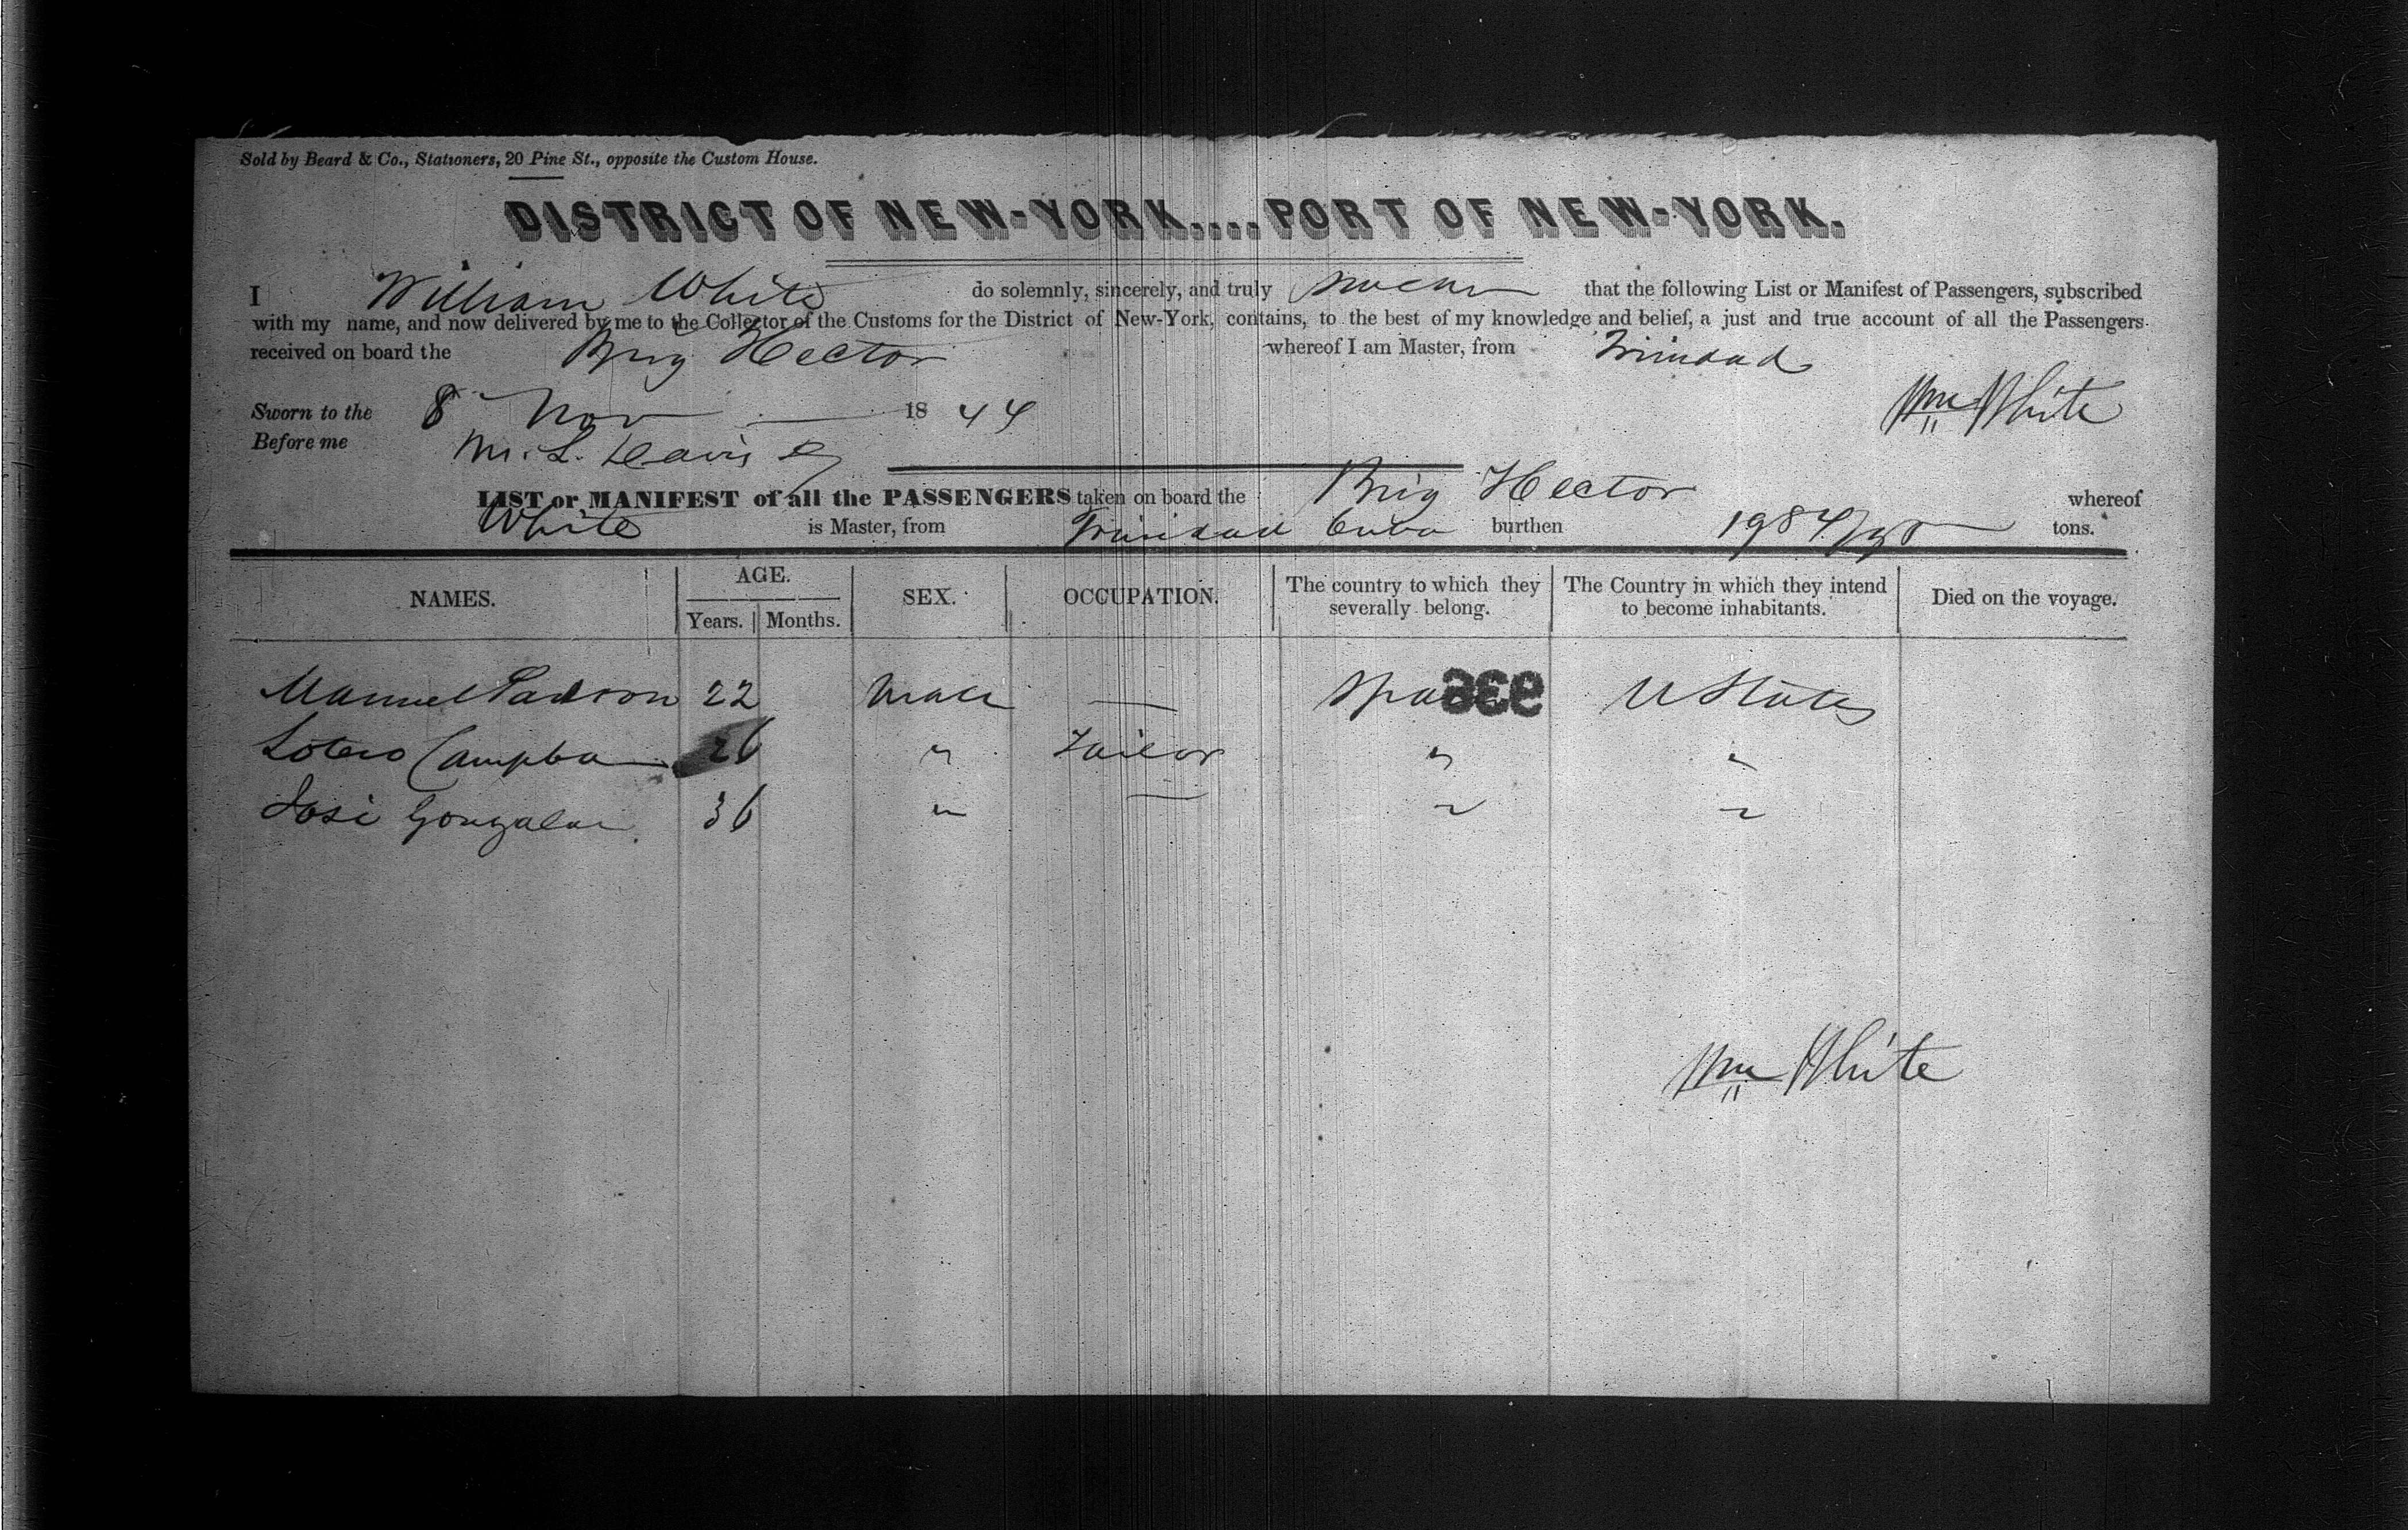 Sold by Beard & Co., Stationers, 20 Pine St., opposite the Custom House.
DISTRICT OF NEW-YORK....PORT OF NEW-YORK.
I William White do solemnly, sincerely, and truly swear that the following List or Manifest of Passengers, subscribed
with my name, and now delivered by me to the Collector of the Customs for the District of New-York, contains, to the best of my knowledge and belief, a just and true account of all the Passengers
received on board the Brig Hector whereof I am Master, from Trinidad
Wm White
Sworn to the 8 Nov 1844
Before me M. L. Davis
LIST or MANIFEST of all the PASSENGERS taken on board the Brig Hector whereof
White is Master, from Trinidad Cuba burthen tons.
NAMES. AGE. Years. Months. SEX. OCCUPATION. The country to which they severally belong. The Country in which they intend to become inhabitants. Died on the voyage.
Manuel Padron 22 Male — 936 U States
Sotero 26 " Tailor " "
José 36 " — " "
Wm White